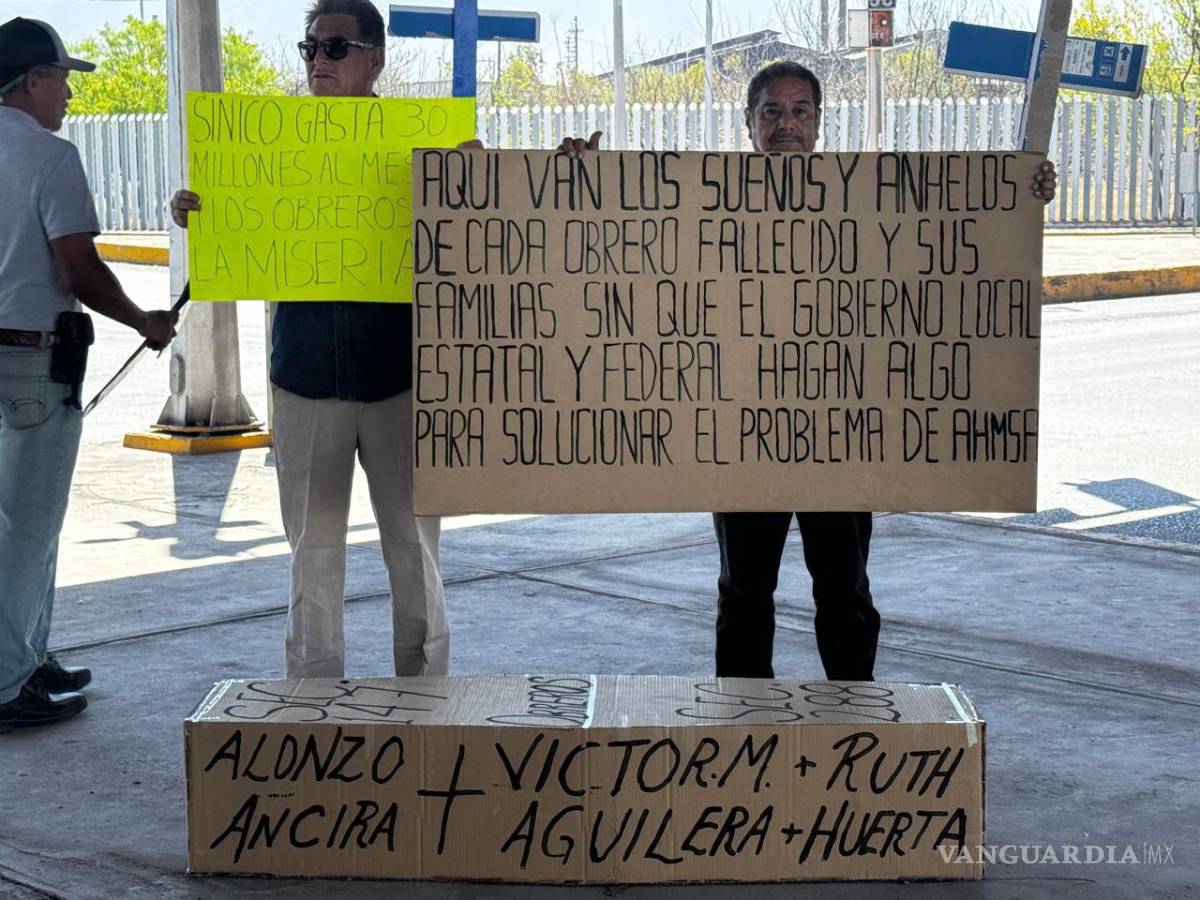 SINICO GASTA 30
MILLONES AL MES
LOS OBREROS
LA MISERIA
AQUI VAN LOS SUEÑOS Y ANHELOS
DE CADA OBRERO FALLECIDO Y SUS
FAMILIAS SIN QUE EL GOBIERNO LOCAL
ESTATAL Y FEDERAL HAGAN ALGO
PARA SOLUCIONAR EL PROBLEMA DE AHMSA
SEC. 147 OBREROS SEC 288
ALONZO ANCIRA + VICTOR.M. AGUILERA + RUTH + HUERTA
VANGUARDIA|MX